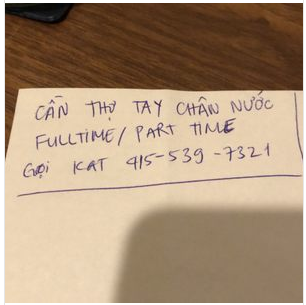 CẦN THỢ TAY CHÂN NƯỚC
FULLTIME/ PART TIME
GỌI KAT 415-539-7321